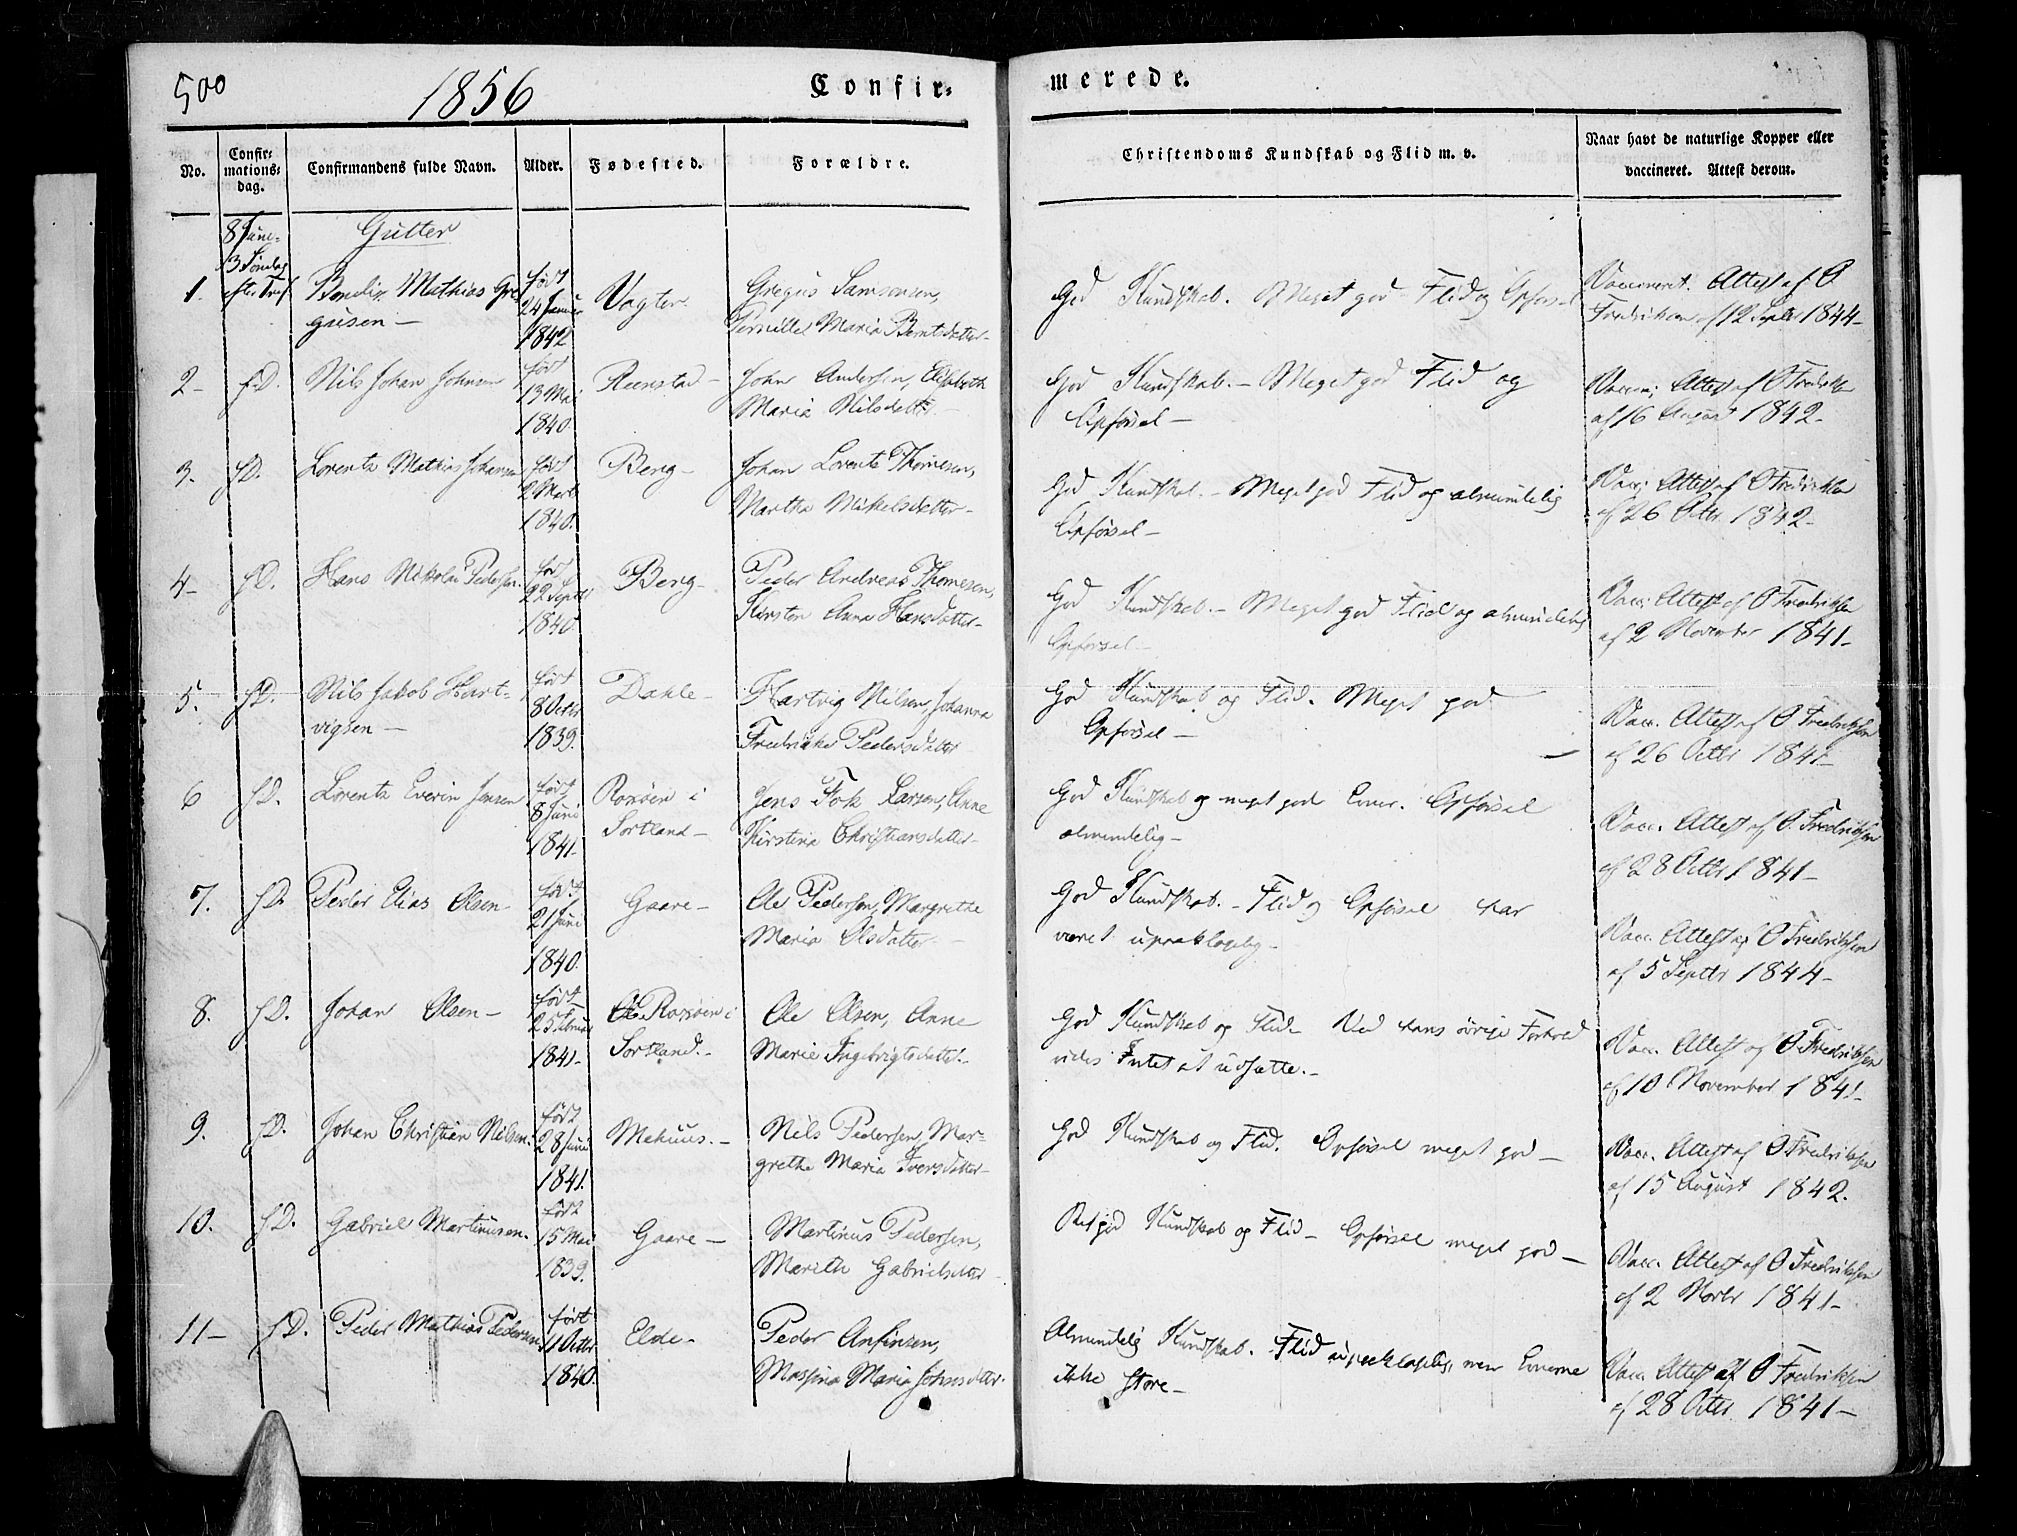 500 1856 Confir= merede.
No. Confirmations-dag. Confirmandens fulde Navn. Alder. Fødested. Forældre. Christendoms Kundskab og Flid m. v. Naar havt de naturlige Kopper eller vaccineret. Attest derom.
8 Juni- Gutter
3 Søndag
1. efter Tref. Bendix Mathias Gre født Vagter Gregus Samsonsen, God Kundskab. Meget god Flid og Opførsel Vaccineret. Attest af O
gusen — 24 Januar Pernille Maria Berntsdatter- Fredriksen af 12 Septbr 1844-
1842
2- f.D. Nils Johan Johnsen født Reenstad- John Andersen, Elisabeth God Kundskab. - Meget god Flid og Vacc; Attest af O Fredriksen
13 Mai Maria Nilsdatter - Opførsel - af 16 August 1842-
1840.
3. f.D. Lorents Mathias Johansen født Berg- Johan Lorents Thomesen, God Kundskab. - Meget god Flid og almindelig Vacc; Attest af O Fredriksen
2 Marts Martha Mikelsdatter- Opførsel - af 26 Octbr 1842-
1840.
4- f.D. Hans Nikolai Pedersen. født Berg- Peder Andreas Thomesen, God Kundskab. - Meget god Flid og almindelig Vacc; Attest af O Fredriksen
22 Septbr Kirsten Anna Hansdatter- Opførsel - af 2 November 1841-
1840.
5. f.D. Nils Jakob Hart- født Dahle- Hartvig Nilsen, Johanna God Kundskab og Flid. Meget god Vacc. Attest af O Fredriksen
vigsen - 8 Octbr Fredrikke Pedersdatter Opførsel - af 26 Octbr 1841-
1839.
6 f.D. Lorents Everin Jensen født Roxøen i Jens Fok Larsen, Anne God Kundskab og meget gode Evner. Opførsel Vacc. Attest af O. Fredriksen
8 Juni Sortland- Kirstina Christiansdatter- almindelig- af 28 Octbr 1841-
1841-
7. f.D. Peder Elias Olsen- født Gaare- Ole Pedersen, Margrethe God Kundskab. - Flid og Opførsel har Vacc. Attest af O Fredriksen
21 Juni Maria Olsdatter - været upaaklagelig- af 5 Septbr 1844-
1840.
8. f.D. Johan Olsen- født Roxøen i Ole Olsen, Anne God Kundskab og Flid- Ved hans øvrige Forhold Vacc. Attest af O Fredriksen
25 Februar Sortland.- Marie Ingebrigtsdatter.- vides Intet at udsætte.- af 10 November 1841-
1841-
9. f.D. Johan Christian Nilsen. født Mehuus.- Nils Pedersen, Mar- God Kundskab og Flid. Opførsel meget god- Vacc. Attest af O Fredriksen
28 Juni grethe Maria Iversdatter- af 15 August 1842.
1841.
10. f.D. Gabriel Martinusen. født Gaare- Martinus Pedersen, Retgod Kundskab og Flid- Opførsel meget god- Vacc. Attest af O Fredriksen
15 Mai Marith Gabrielsdatter - af 2 Novbr 1841-
1839.
11- f.D. Peder Mathias Pedersen født Elde- Peder Anfinsen, Almindelig Kundskab. Flid upaaklagelig, men Evnerne Vacc. Attest af O Fredriksen
11 Octbr Massina Maria Johnsdatter. ikke store- af 28 Octbr 1841-
1840.